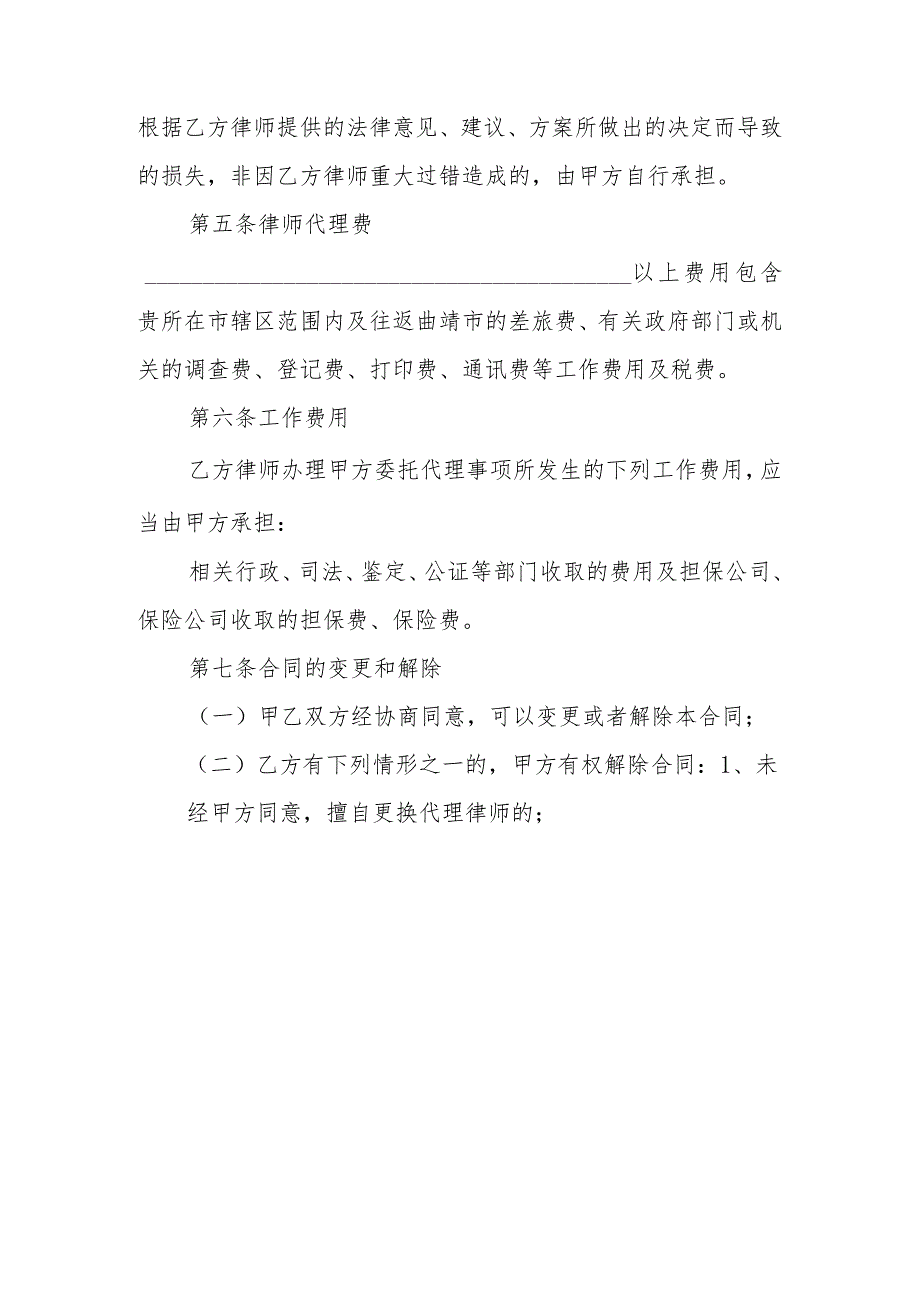 根据乙方律师提供的法律意见、建议、方案所做出的决定而导致
的损失，非因乙方律师重大过错造成的，由甲方自行承担。
第五条律师代理费
__________________________________________以上费用包含
贵所在市辖区范围内及往返曲靖市的差旅费、有关政府部门或机
关的调查费、登记费、打印费、通讯费等工作费用及税费。
第六条工作费用
乙方律师办理甲方委托代理事项所发生的下列工作费用，应
当由甲方承担：
相关行政、司法、鉴定、公证等部门收取的费用及担保公司、
保险公司收取的担保费、保险费。
第七条合同的变更和解除
（一）甲乙双方经协商同意，可以变更或者解除本合同；
（二）乙方有下列情形之一的，甲方有权解除合同：1、未
经甲方同意，擅自更换代理律师的；